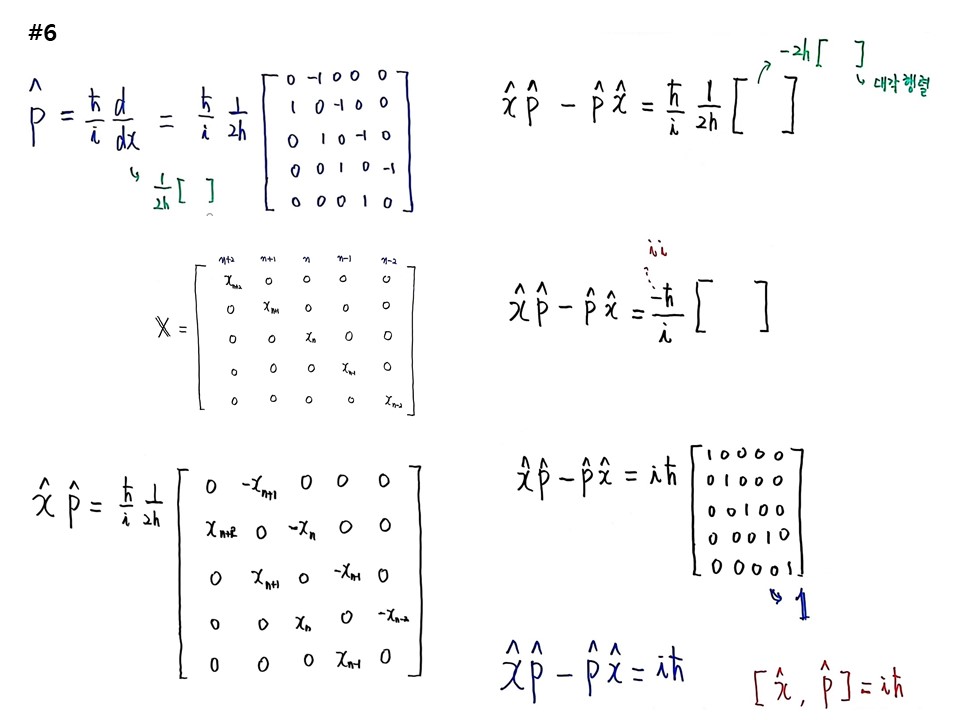 #6
p̂ = ħ/i d/dx = ħ/i 1/2h [
0 -1 0 0 0
1 0 -1 0 0
0 1 0 -1 0
0 0 1 0 -1
0 0 0 1 0 ]
↳ 1/2h [ ]
n+2 n+1 n n-1 n-2
𝕏 = [
x_{n+2} 0 0 0 0
0 x_{n+1} 0 0 0
0 0 x_n 0 0
0 0 0 x_{n-1} 0
0 0 0 0 x_{n-2} ]
x̂ p̂ = ħ/i 1/2h [
0 -x_{n+1} 0 0 0
x_{n+2} 0 -x_n 0 0
0 x_{n+1} 0 -x_{n-1} 0
0 0 x_n 0 -x_{n-2}
0 0 0 x_{n-1} 0 ]
-2h [ ]
↳ 대각행렬
x̂ p̂ - p̂ x̂ = ħ/i 1/2h [ ]
i i
x̂ p̂ - p̂ x̂ = -ħ/i [ ]
x̂ p̂ - p̂ x̂ = iħ [
1 0 0 0 0
0 1 0 0 0
0 0 1 0 0
0 0 0 1 0
0 0 0 0 1 ]
↳ 𝟙
x̂ p̂ - p̂ x̂ = iħ
[ x̂ , p̂ ] = iħ